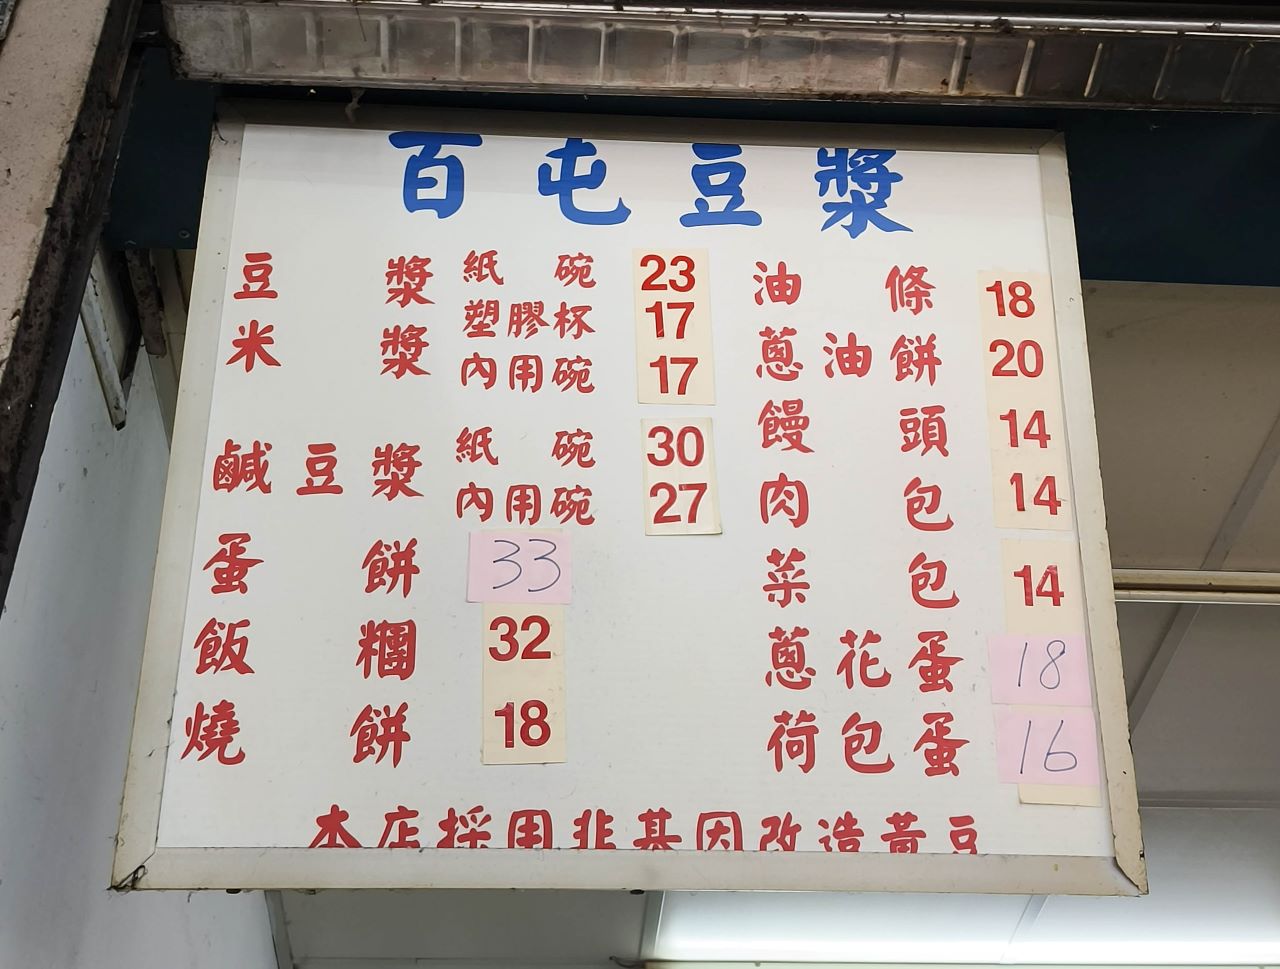 百屯豆漿
豆漿 紙碗 23
米漿 塑膠杯 17
內用碗 17
鹹豆漿 紙碗 30
內用碗 27
蛋餅 33
飯糰 32
燒餅 18
油條 18
蔥油餅 20
饅頭 14
肉包 14
菜包 14
蔥花蛋 18
荷包蛋 16
本店採用非基因改造黃豆